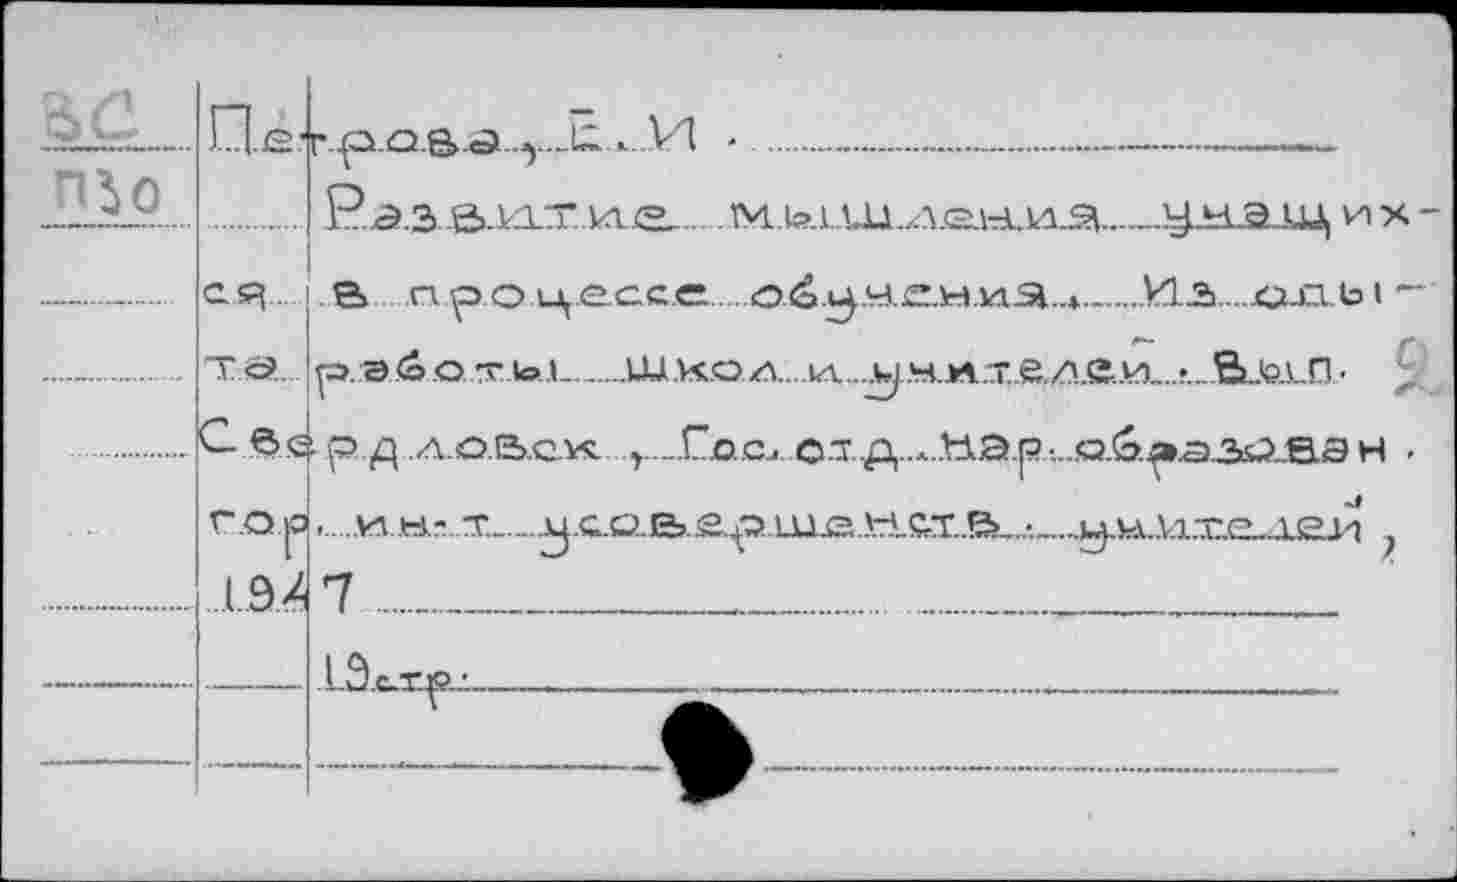 ВС Петрова, Е. И.
П30 Развитие мышления учащих-
ся в процессе обучения. Из опы-
та работы школ и учителей. Вып. 2
Свердловск, Гос. отд. нар. образован.
гор. ин-т усовершенств. учителей,
1947
19стр.